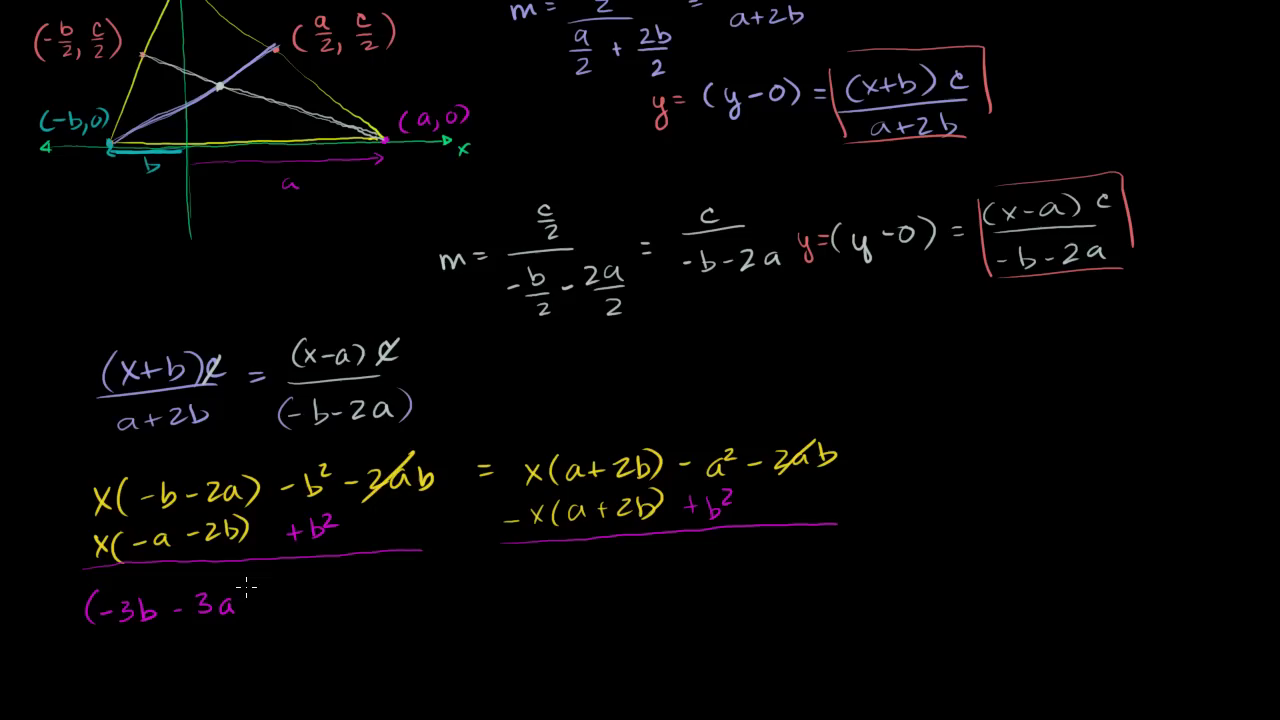 (-b/2, c/2) (a/2, c/2)
m = 2 / (a/2 + 2b/2) = a+2b
y= (y-0) = (x+b) c / a+2b
(-b,0) (a,0)
x
b
a
m = c/2 / (-b/2 - 2a/2) = c / -b-2a y=(y-0) = (x-a) c / -b-2a
(x+b)c / a+2b = (x-a) c / (-b-2a)
x(-b-2a) -b² -2ab = x(a+2b) -a² -2ab
x(-a -2b) +b² -x(a+2b) +b²
(-3b - 3a